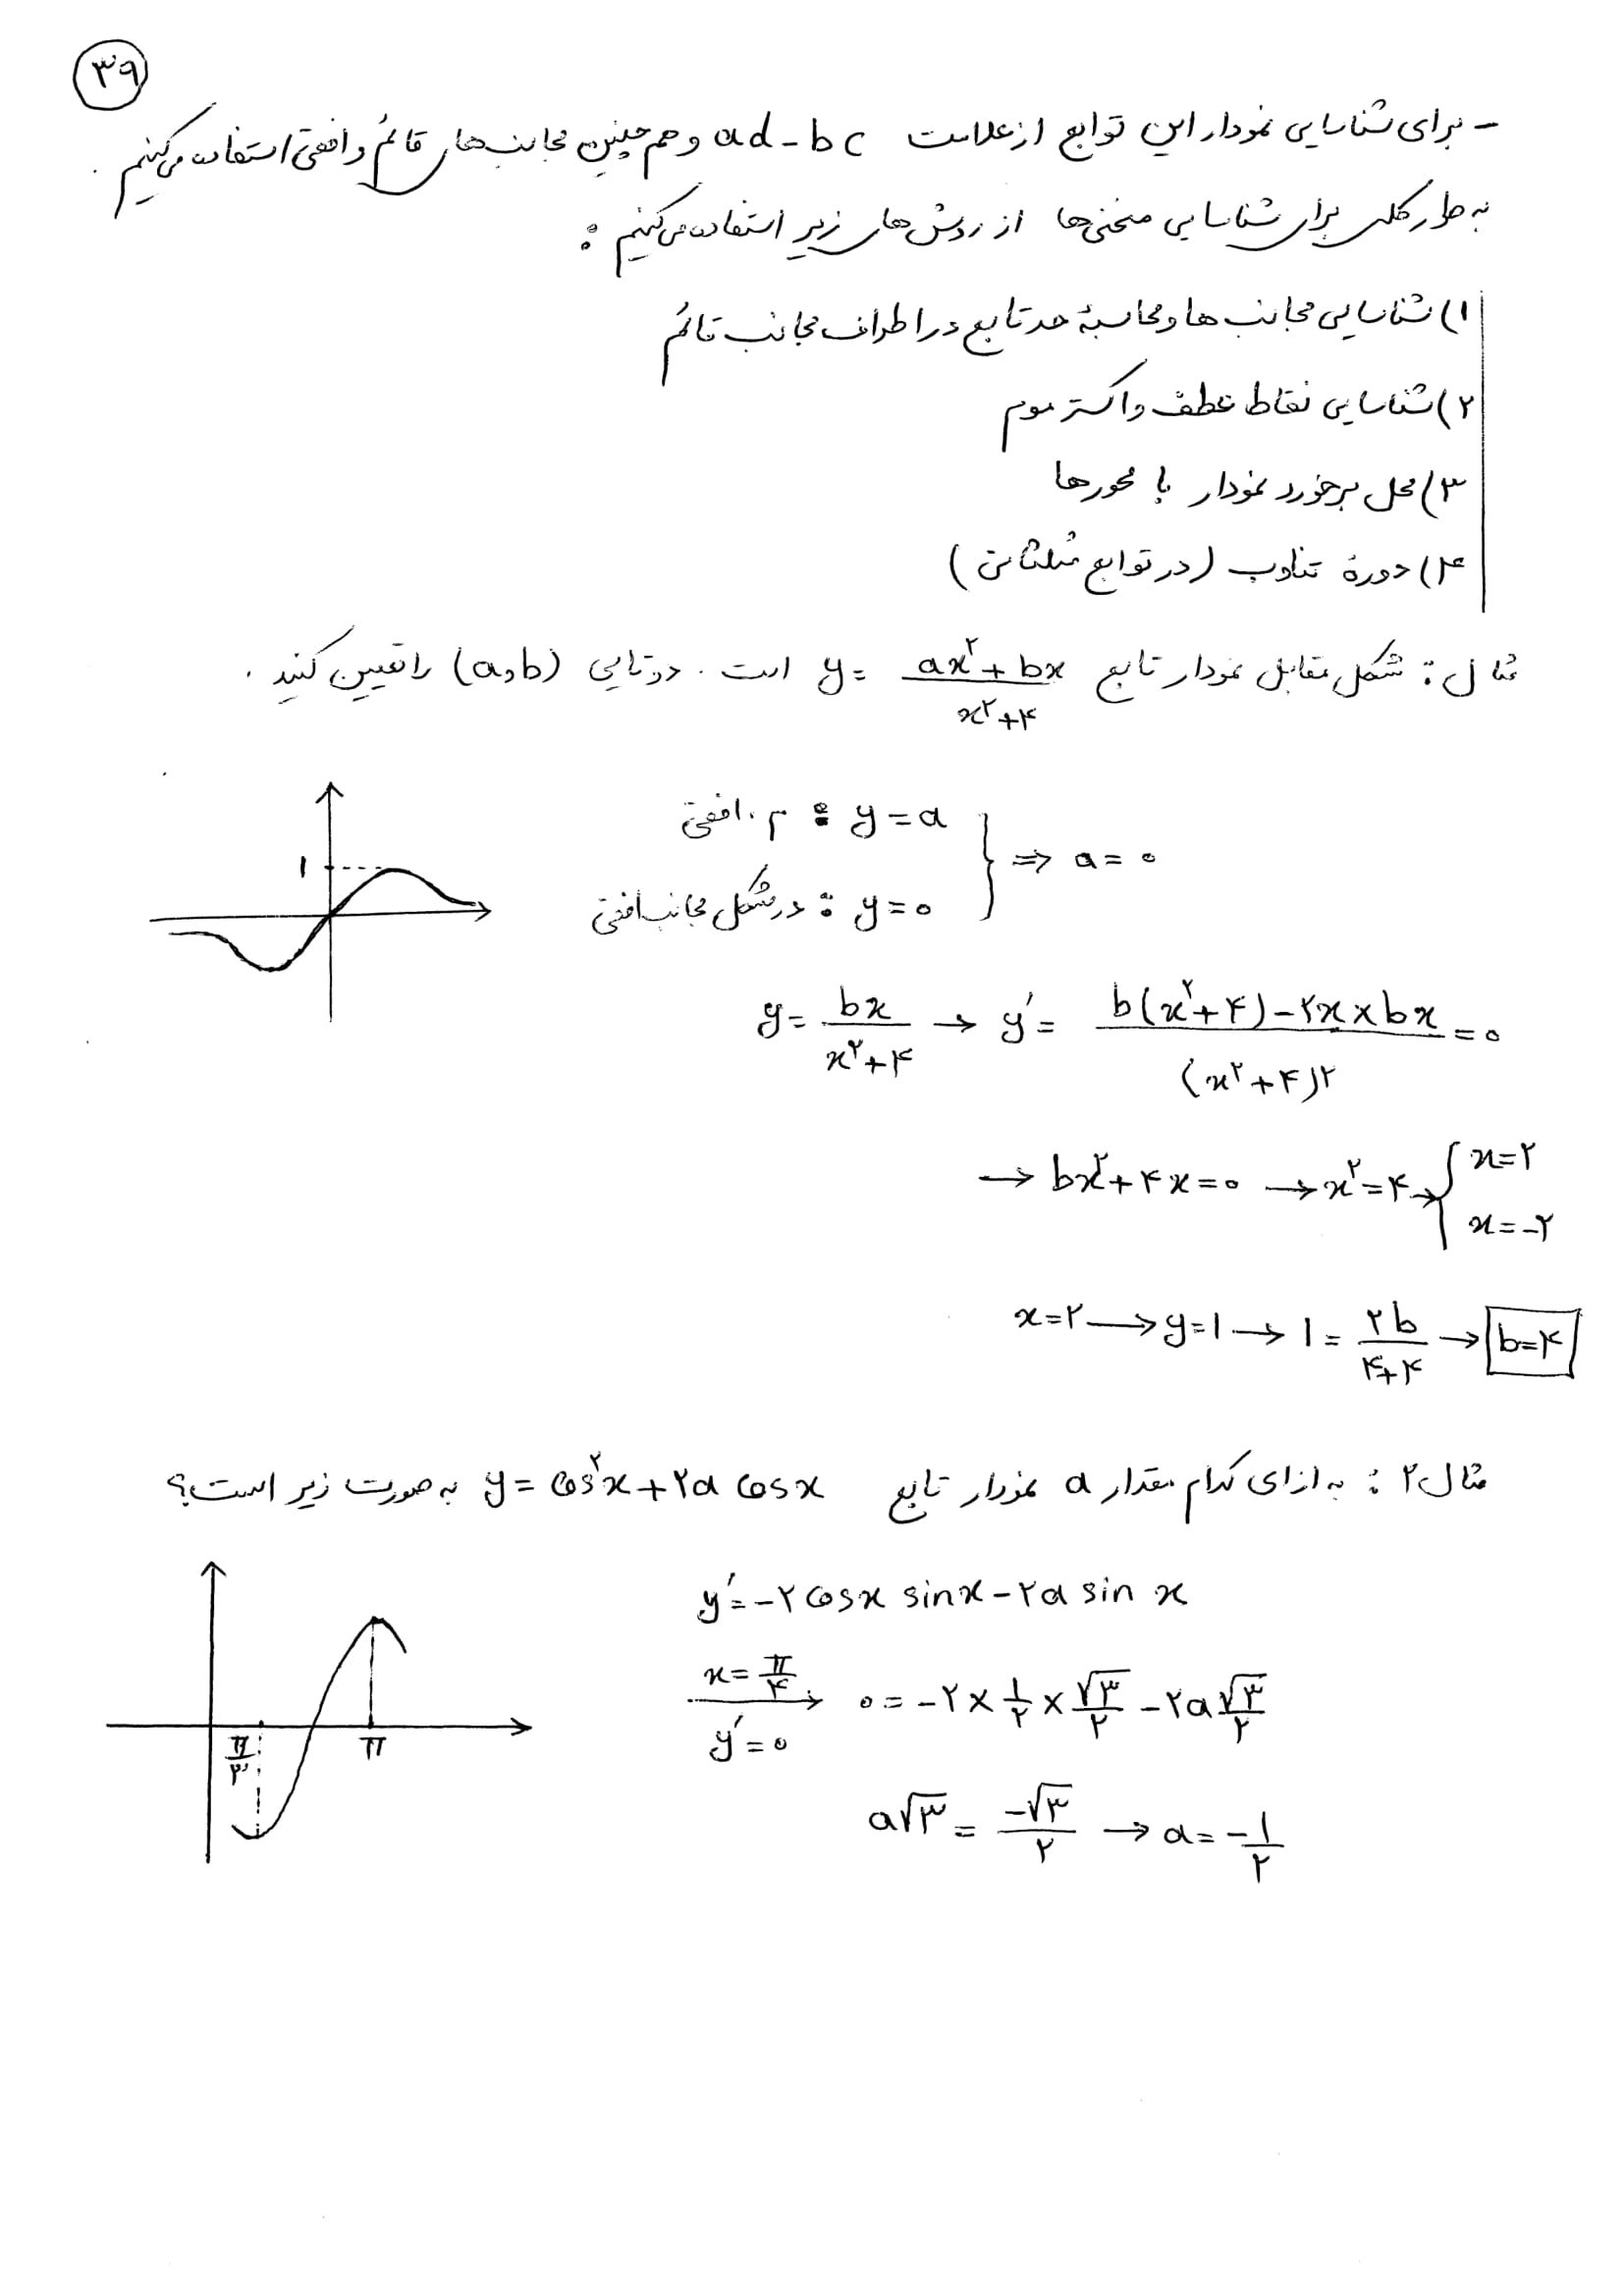 ۳۹
- برای شناسایی نمودار این توابع از علامت ad-bc و هم چنین مجانب های قائم و افقی استفاده می کنیم .
به طور کلی برای شناسایی منحنی ها از روش های زیر استفاده می کنیم :
۱) شناسایی مجانب ها و محاسبهٔ حد تابع در اطراف مجانب قائم
۲) شناسایی نقاط عطف و اکسترموم
۳) محل برخورد نمودار با محورها
۴) دورهٔ تناوب (در توابع مثلثاتی)
مثال : شکل مقابل نمودار تابع y = (ax²+bx)/(x²+۴) است . دوتایی (a,b) را تعیین کنید .
م . افقی : y=a
در شکل مجانب افقی : y=۰
} ⇒ a=۰
۱
y = bx/(x²+۴) → y′ = (b(x²+۴)-۲x×bx)/(x²+۴)² = ۰
→ bx²+۴x=۰ → x²=۴ → { x=۲
x=-۲
x=۲ → y=۱ → ۱ = ۲b/(۴+۴) → b=۴
مثال ۲ : به ازای کدام مقدار a نمودار تابع y = cos²x+۲a cosx به صورت زیر است؟
y′=-۲cosx sinx-۲a sin x
x=π/۴ , y′=۰ → ۰=-۲×۱/۲×√۳/۲-۲a√۳/۲
π/۳ π
a√۳ = -√۳/۲ → a=-۱/۲